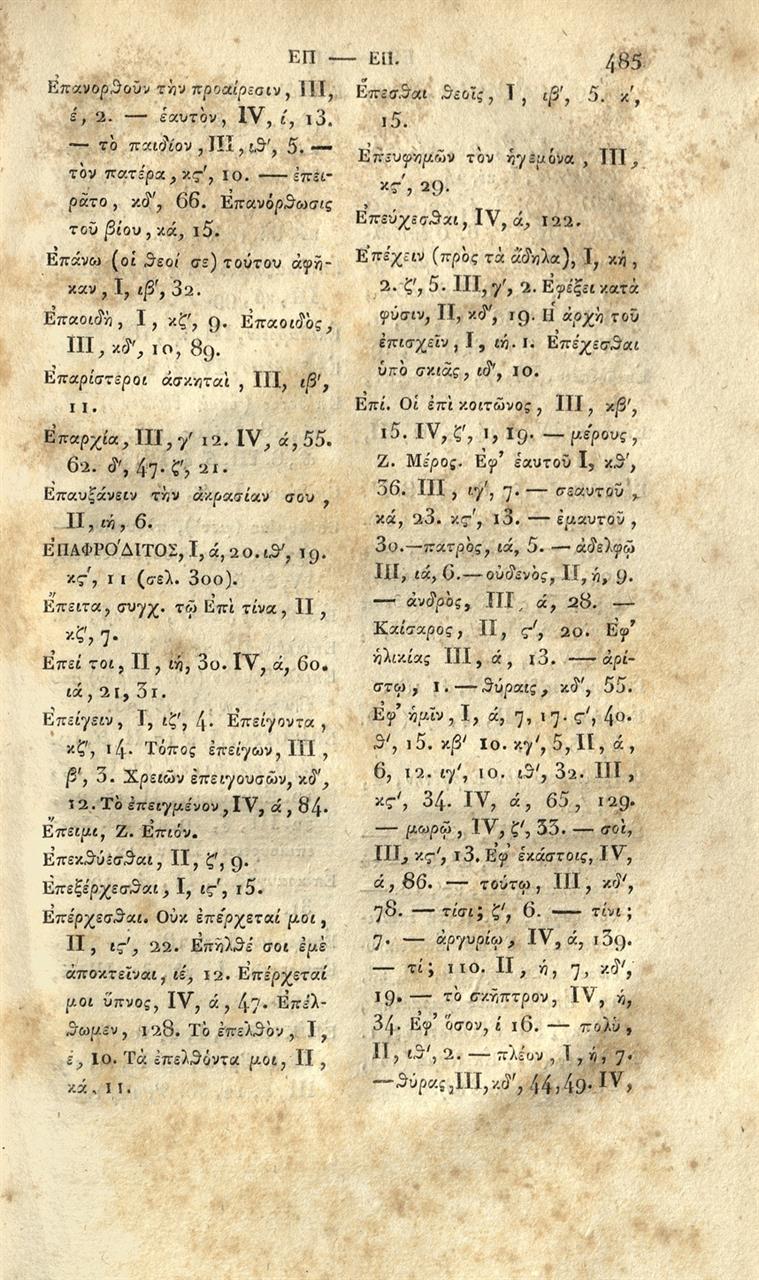 ΕΠ — ΕΠ. 485
Ἐπανορθοῦν τὴν προαίρεσιν, III,
έ, 2. — ἑαυτὸν, IV, ί, 13.
— τὸ παιδίον, III, ιθ′, 5. —
τὸν πατέρα, κς′, 10. — ἐπει-
ρᾶτο, κδ′, 66. Ἐπανόρθωσις
τοῦ βίου, κά, 15.
Ἐπάνω (οἱ θεοί σε) τούτου ἀφῆ-
καν, I, ιβ′, 32.
Ἐπαοιδὴ, I, κζ′, 9. Ἐπαοιδὸς,
III, κδ′, 10, 89.
Ἐπαρίστεροι ἀσκηταὶ, III, ιβ′,
11.
Ἐπαρχία, III, γ′ 12. IV, ά, 55.
62. δ′, 47. ζ′, 21.
Ἐπαυξάνειν τὴν ἀκρασίαν σου,
II, ιή, 6.
ἘΠΑΦΡΌΔΙΤΟΣ, I, ά, 20. ιθ′, 19.
κς′, 11 (σελ. 300).
Ἔπειτα, συγχ. τῷ Ἐπὶ τίνα, II,
κζ′, 7.
Ἐπεί τοι, II, ιή, 30. IV, ά, 60.
ιά, 21, 31.
Ἐπείγειν, I, ιζ′, 4. Ἐπείγοντα,
κζ′, 14. Τόπος ἐπείγων, III,
β′, 3. Χρειῶν ἐπειγουσῶν, κδ′,
12. Τὸ ἐπειγμένον, IV, ά, 84.
Ἔπειμι, Ζ. Ἐπιόν.
Ἐπεκθύεσθαι, II, ζ′, 9.
Ἐπεξέρχεσθαι, I, ις′, 15.
Ἐπέρχεσθαι. Οὐκ ἐπέρχεταί μοι,
II, ις′, 22. Ἐπῆλθέ σοι ἐμὲ
ἀποκτεῖναι, ιέ, 12. Ἐπέρχεταί
μοι ὕπνος, IV, ά, 47. Ἐπέλ-
θωμεν, 128. Τὸ ἐπελθὸν, I,
έ, 10. Τὰ ἐπελθόντα μοι, II,
κά, 11.
Ἕπεσθαι θεοῖς, I, ιβ′, 5. κ′,
15.
Ἐπευφημῶν τὸν ἡγεμόνα, III,
κς′, 29.
Ἐπεύχεσθαι, IV, ά, 122.
Ἐπέχειν (πρὸς τὰ ἄδηλα), I, κή,
2. ζ′, 5. III, γ′, 2. Ἐφέξει κατὰ
φύσιν, II, κδ′, 19. Ἡ ἀρχὴ τοῦ
ἐπισχεῖν, I, ιή. 1. Ἐπέχεσθαι
ὑπὸ σκιᾶς, ιδ′, 10.
Ἐπί. Οἱ ἐπὶ κοιτῶνος, III, κβ′,
15. IV, ζ′, 1, 19. — μέρους,
Ζ. Μέρος. Ἐφ’ ἑαυτοῦ I, κθ′,
36. III, ιγ′, 7. — σεαυτοῦ,
κά, 23. κς′, 13. — ἐμαυτοῦ,
30. — πατρὸς, ιά, 5. — ἀδελφῷ
III, ιά, 6. — οὐδενὸς, II, ή, 9.
— ἀνδρὸς, III, ά, 28. —
Καίσαρος, II, ς′, 20. Ἐφ’
ἡλικίας III, ά, 13. — ἀρί-
στῳ, 1. — θύραις, κδ′, 55.
Ἐφ’ ἡμῖν, I, ά, 7, 17. ς′, 40.
θ′, 15. κβ′ 10. κγ′, 5, II, ά,
6, 12. ιγ′, 10. ιθ′, 32. III,
κς′, 34. IV, ά, 65, 129.
— μωρῷ, IV, ζ′, 33. — σοὶ,
III, κς′, 13. Ἐφ’ ἑκάστοις, IV,
ά, 86. — τούτῳ, III, κδ′,
78. — τίσι; ζ′, 6. — τίνι;
7. — ἀργυρίῳ, IV, ά, 139.
— τί; 110. II, ή, 7, κδ′,
19. — τὸ σκῆπτρον, IV, ή,
34. Ἐφ’ ὅσον, ί 16. — πολὺ,
II, ιθ′, 2. — πλέον, I, ή, 7.
— θύρας, III, κδ′, 44, 49. IV,